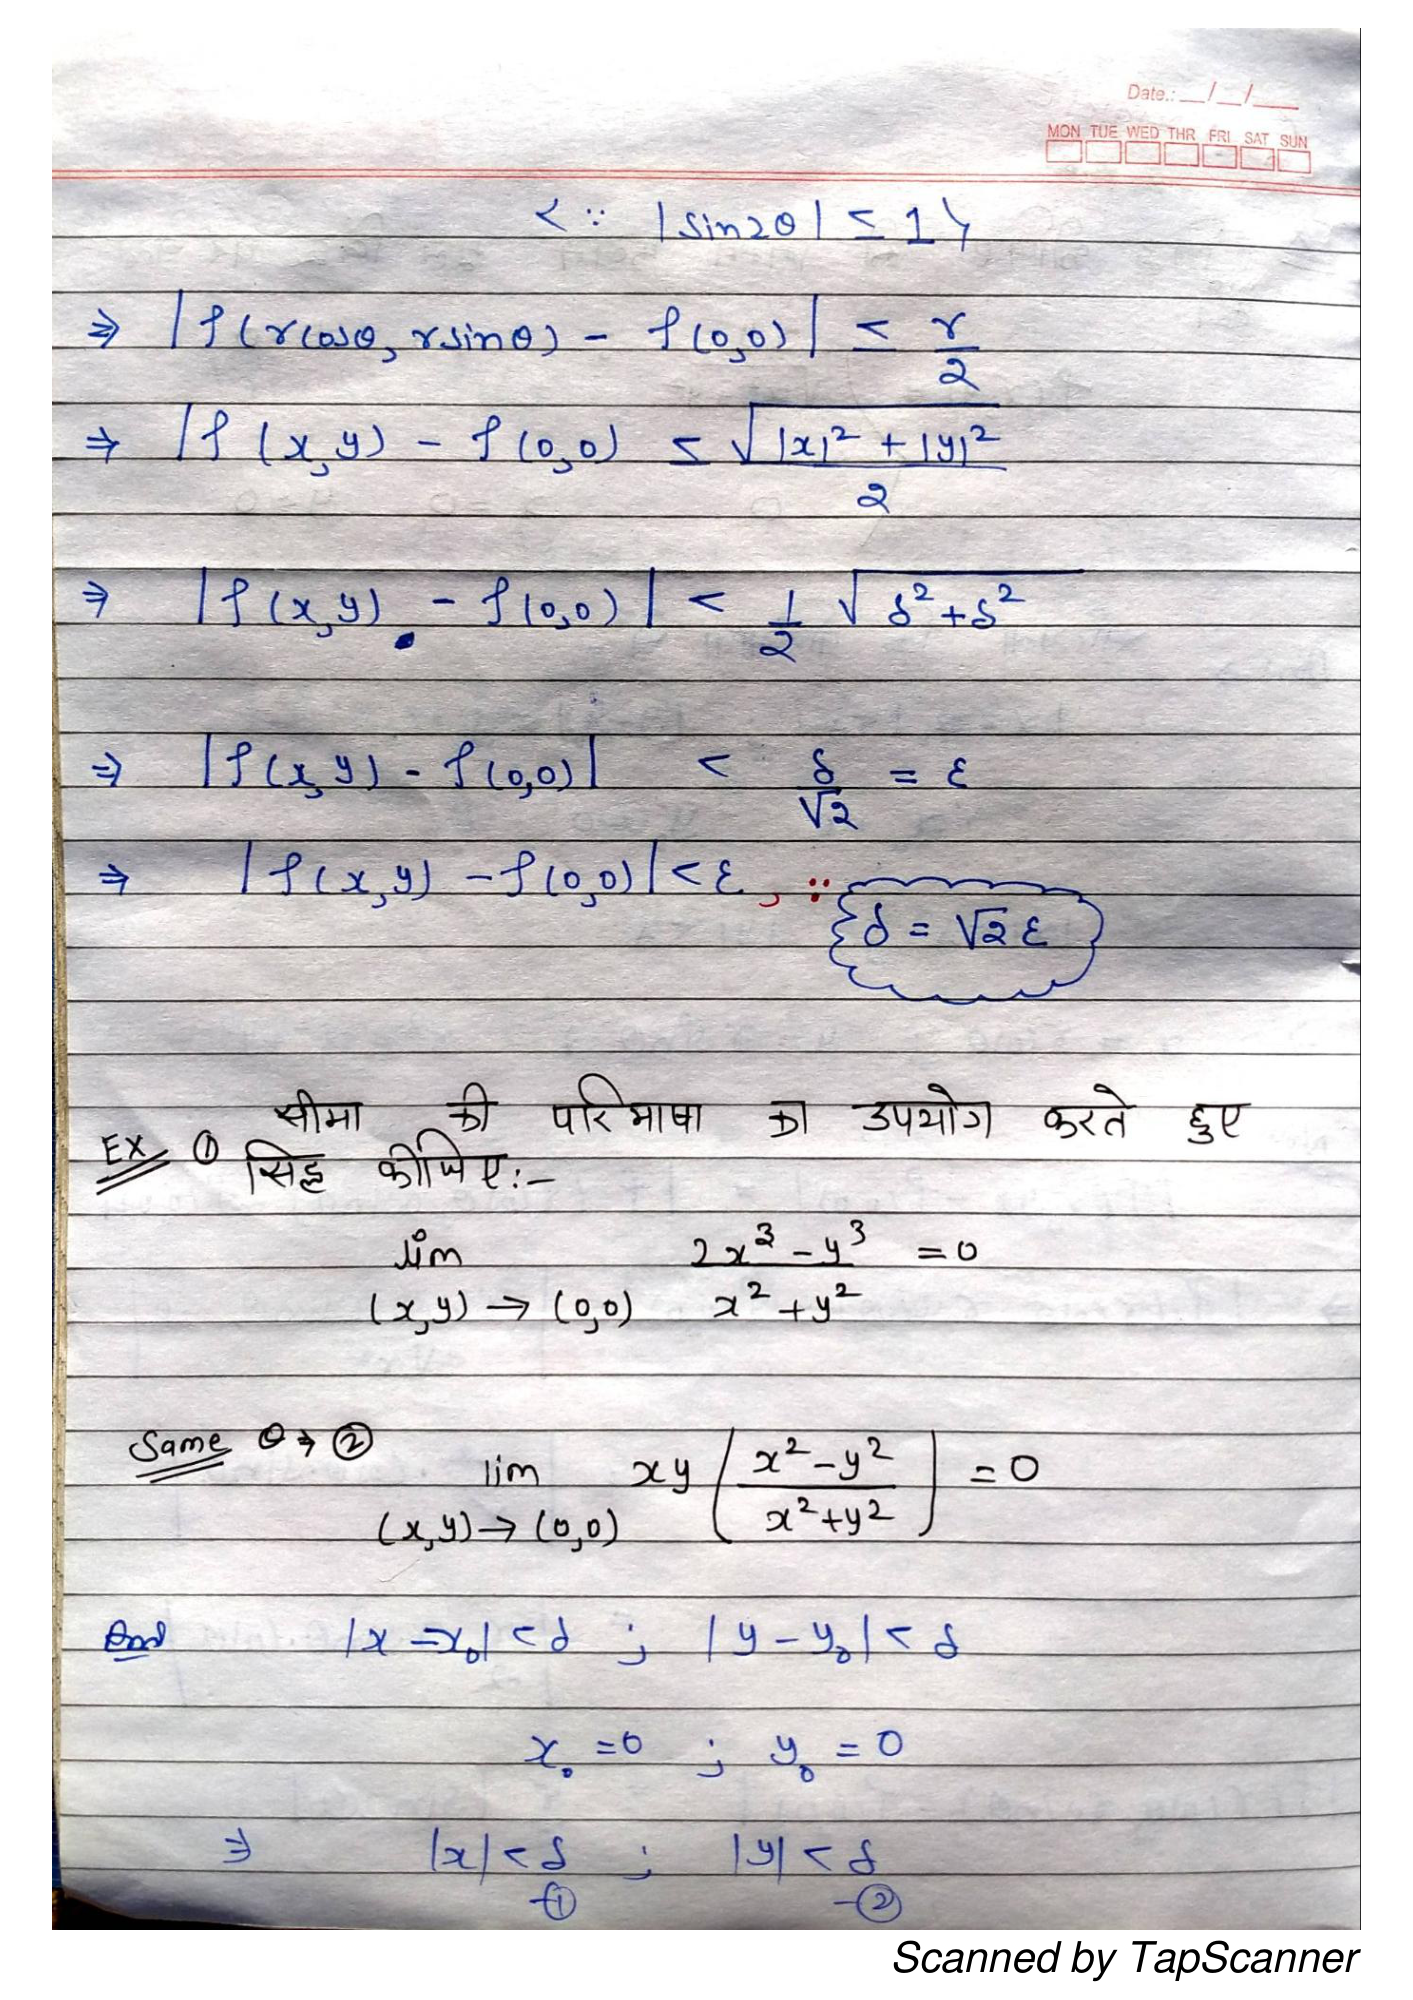 Date.: __/__/___
MON TUE WED THR FRI SAT SUN
< ∵ |sin2θ| ≤ 1 }
⇒ |f(rcosθ, rsinθ) - f(0,0)| ≤ r/2
⇒ |f(x,y) - f(0,0) ≤ √(|x|² + |y|²)/2
⇒ |f(x,y) - f(0,0)| < 1/2 √(δ²+δ²)
⇒ |f(x,y) - f(0,0)| < δ/√2 = ε
⇒ |f(x,y) - f(0,0)| < ε, ∵
{δ = √2 ε}
सीमा की परिभाषा का उपयोग करते हुए
EX ① सिद्ध कीजिए:-
lim (x,y) → (0,0) (2x³ - y³)/(x² + y²) = 0
Same θ → ②
lim (x,y) → (0,0) xy ((x² - y²)/(x² + y²)) = 0
|x - x₀| < δ ; |y - y₀| < δ
x₀ = 0 ; y₀ = 0
⇒ |x| < δ -① ; |y| < δ -②
Scanned by TapScanner